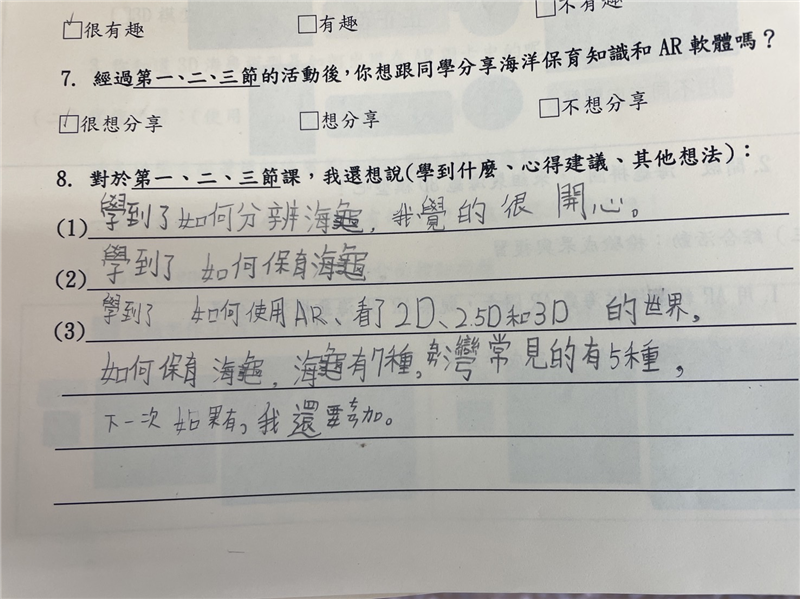 ☑很有趣 □有趣 □不有趣
7. 經過第一、二、三節的活動後，你想跟同學分享海洋保育知識和 AR 軟體嗎？
☑很想分享 □想分享 □不想分享
8. 對於第一、二、三節課，我還想說(學到什麼、心得建議、其他想法)：
(1) 學到了如何分辨海龜，我覺的很開心。
(2) 學到了 如何保育海龜。
(3) 學到了 如何使用AR、看了2D、2.5D和3D 的世界，
如何保育海龜，海龜有7種，台灣常見的有5種，
下一次如果有，我還要參加。